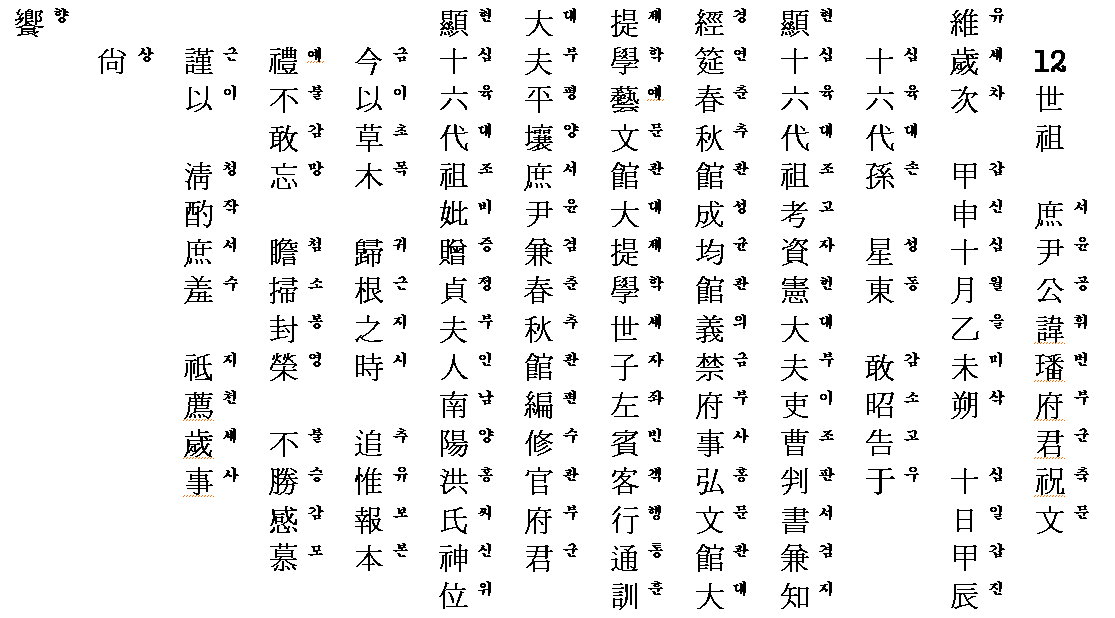 12世祖 庶尹公諱璠府君祝文
서윤공휘번부군축문
維歲次 甲申十月乙未朔 十日甲辰
유세차 갑신십월을미삭 십일갑진
十六代孫 星東 敢昭告于
십육대손 성동 감소고우
顯十六代祖考資憲大夫吏曹判書兼知
현십육대조고자헌대부이조판서겸지
經筵春秋館成均館義禁府事弘文館大
경연춘추관성균관의금부사홍문관대
提學藝文館大提學世子左賓客行通訓
제학예문관대제학세자좌빈객행통훈
大夫平壤庶尹兼春秋館編修官府君
대부평양서윤겸춘추관편수관부군
顯十六代祖妣贈貞夫人南陽洪氏神位
현십육대조비증정부인남양홍씨신위
今以草木 歸根之時 追惟報本
금이초목 귀근지시 추유보본
禮不敢忘 瞻掃封榮 不勝感慕
예불감망 첨소봉영 불승감모
謹以 淸酌庶羞 祗薦歲事
근이 청작서수 지천세사
尙
상
饗
향